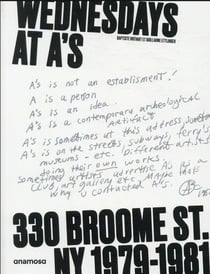 WEDNESDAYS
AT A'S
BAPTISTE BRÉVART ET GUILLAUME ETTLINGER
A's is not an establisment!
A is a person
A's is an idea.
A's is a contemporary archeological
Artifact
A's is sometimes at this address sometimes
A's is on the streets subways ferry's
museums - etc. Different artists
doing their own works
sometimes artists advertise it as a
club, art gallery etc. maybe that's
why u contacted A's.
330 BROOME ST.
anamosa
NY 1979-1981